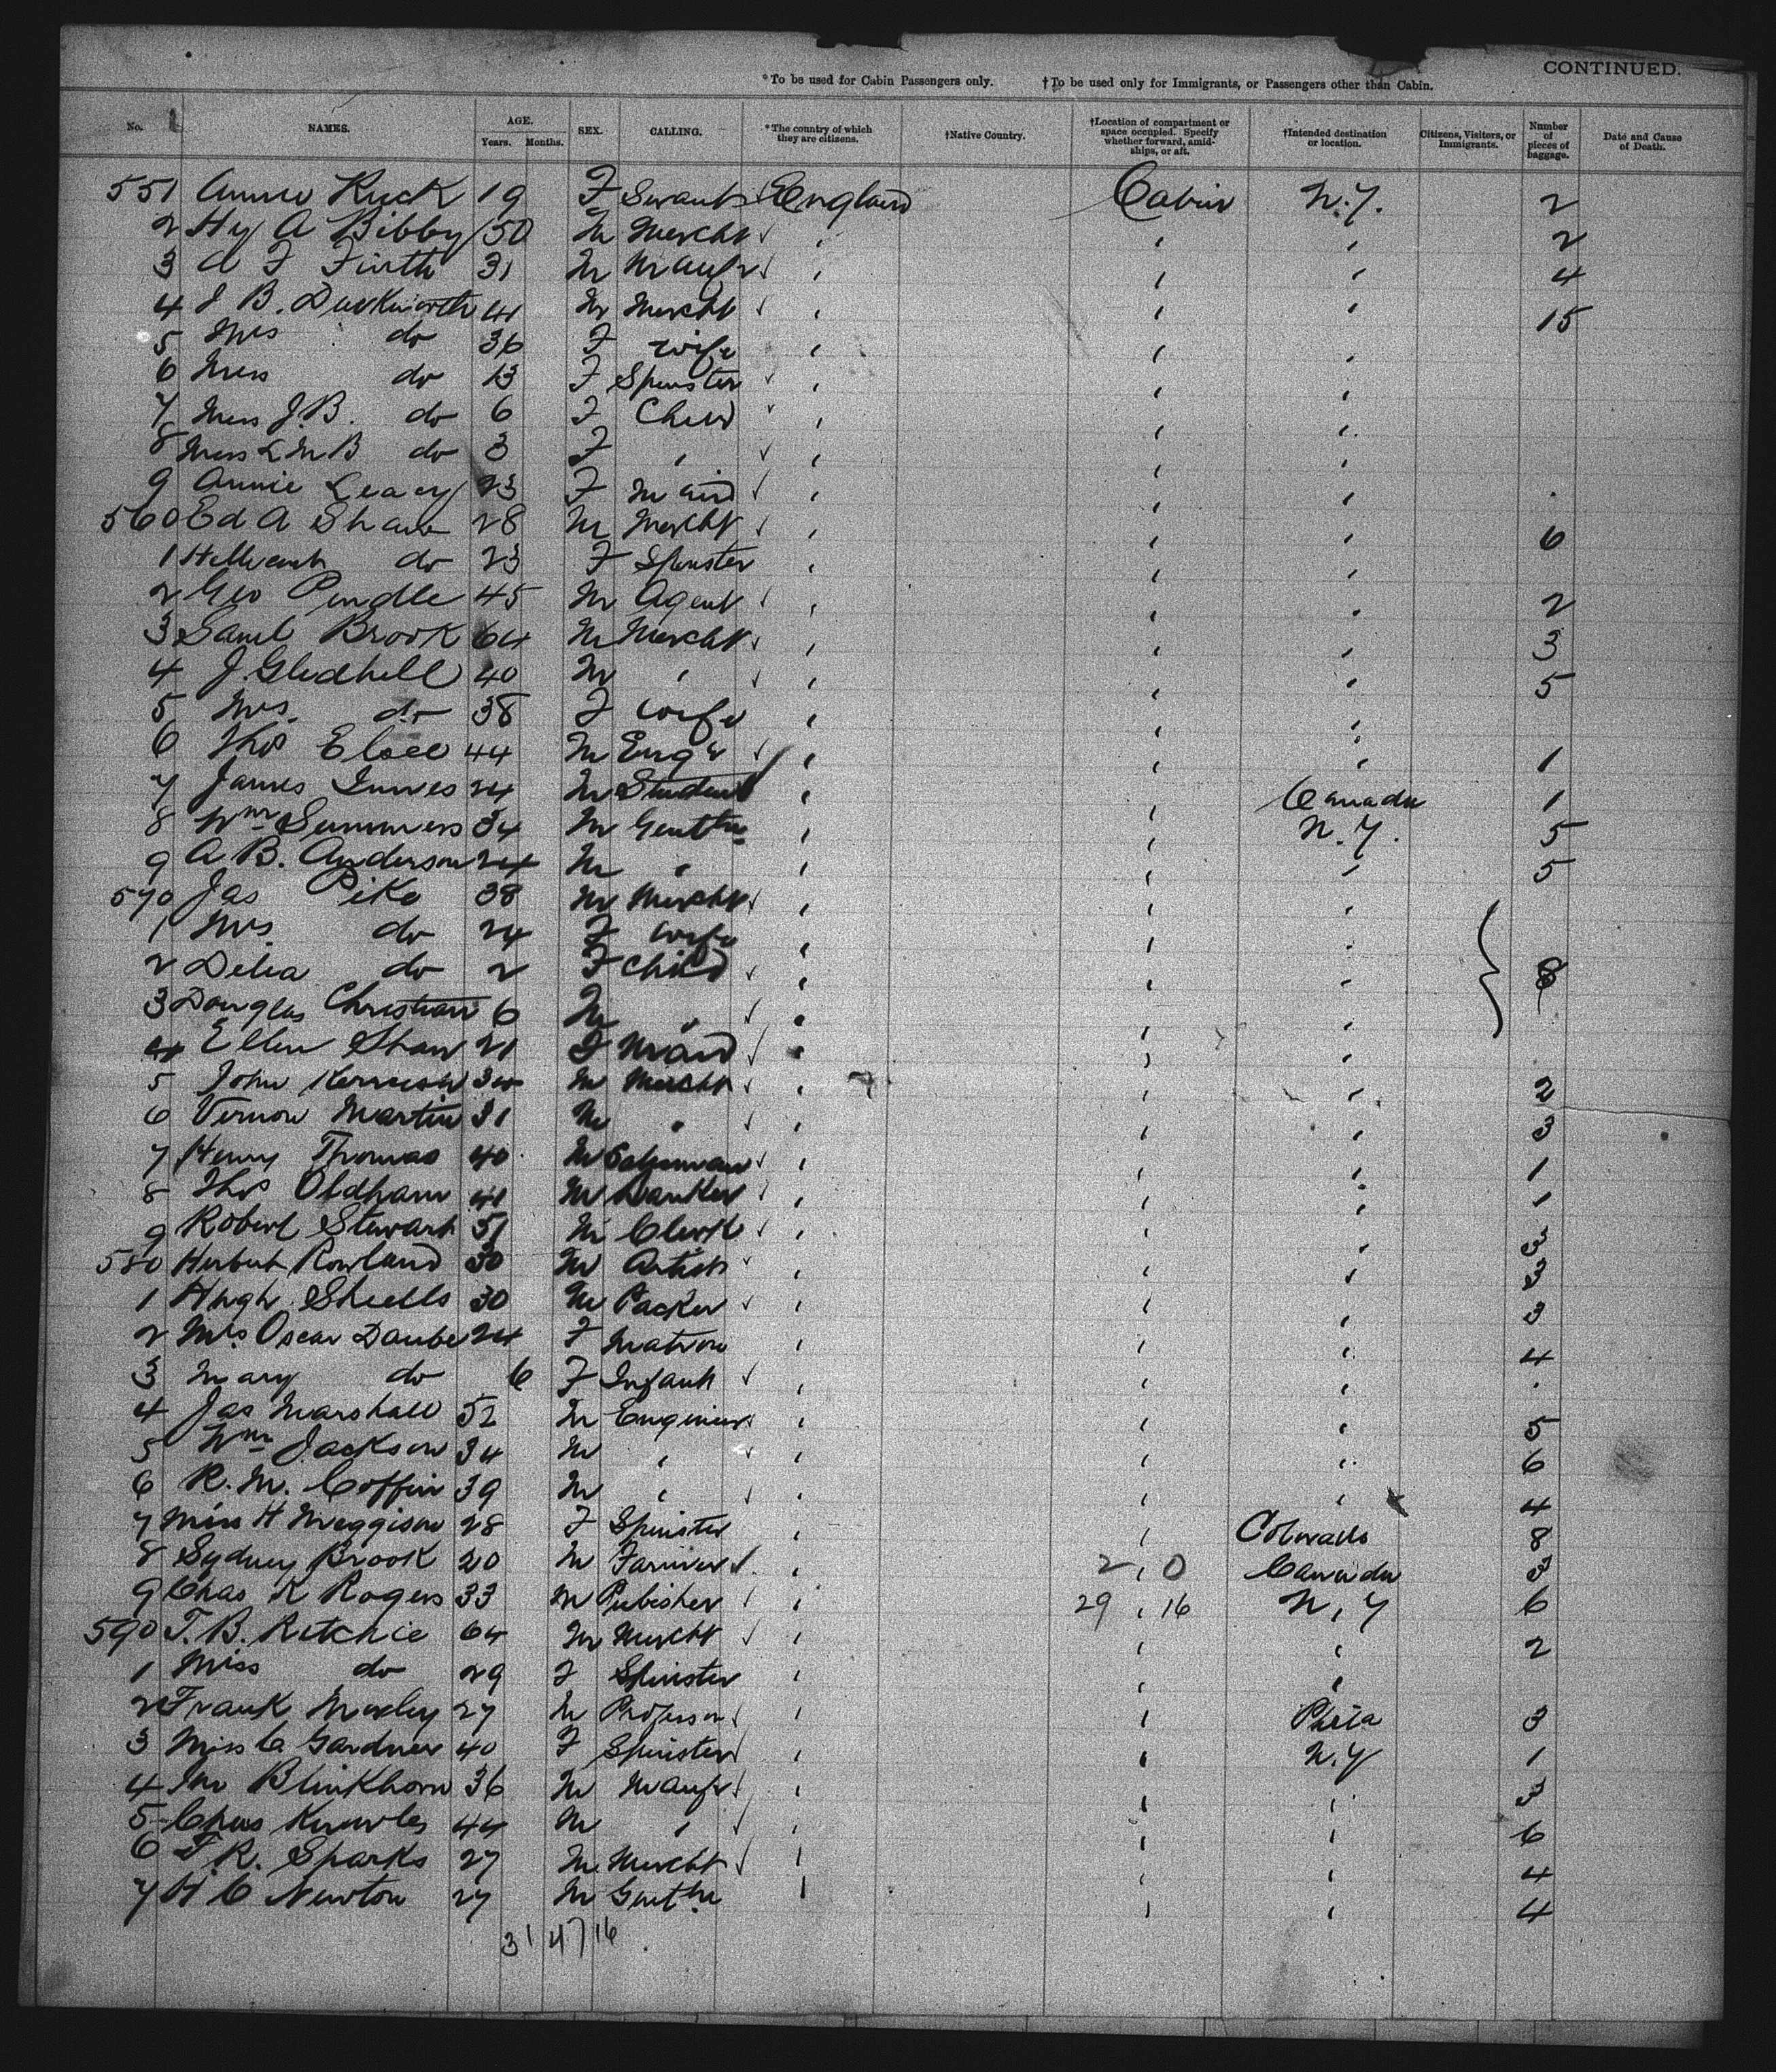 CONTINUED.
*To be used for Cabin Passengers only. †To be used only for Immigrants, or Passengers other than Cabin.
No. NAMES. AGE. Years. Months. SEX. CALLING. *The country of which they are citizens. †Native Country. †Location of compartment or space occupied. Specify whether forward, amidships, or aft. †Intended destination or location. Citizens, Visitors, or Immigrants. Number of pieces of baggage. Date and Cause of Death.
551 Annie Ruck 19 F Servant England Cabin N.Y. 2
2 Hy A Bibby 50 M Mercht " " " 2
3 A F Firth 31 M Manfr " " " 4
4 J B. Duckworth 41 M Mercht " " " 15
5 Mrs do 36 F Wife " " "
6 Miss do 13 F Spinster " " "
7 Miss J.B. do 6 F Child " " "
8 Miss L M B do 3 F " " " "
9 Annie Leary 23 F Maid " " "
560 Ed A Shaw 28 M Mercht " " " 6
1 do 23 F Spinster " " "
2 Geo Pendle 45 M Agent " " " 2
3 Saml Brook 64 M Mercht " " " 3
4 J. Gledhill 40 M " " " " 5
5 Mrs. do 38 F Wife " " "
6 Thos Elsee 44 M Engr " " " 1
7 James Innes 24 M Student " " Canada 1
8 Wm Summers 34 M Gentln " " N.Y. 5
9 A B. Anderson 24 M " " " " 5
570 Jas Pike 38 M Mercht " " "
1 Mrs. do 24 F Wife " " "
2 Delia do 2 F Child " " " 8
3 Douglas Christian 6 M " " " "
4 Ellen Shaw 21 F Maid " " "
5 John Kerruish M Mercht " " " 2
6 Vernon Martin 31 M " " " " 3
7 Henry Thomas 40 M Salesman " " " 1
8 Thos Oldham 41 M Banker " " " 1
9 Robert Stewart 51 M Clerk " " " 3
580 Herbert Rowland 30 M Artist " " " 3
1 Hugh Shiells 30 M Packer " " " 3
2 Mrs Oscar Daube 24 F Matron " " " 4
3 Mary do 6 F Infant " " "
4 Jas Marshall 52 M Engineer " " " 5
5 Wm Jackson 34 M " " " " 6
6 R. M. Coffin 39 M " " " " 4
7 Miss H Meggison 28 F Spinster " " 8
8 Sydney Brook 20 M Farmer " 2 " 0 Canada 3
9 Chas K Rogers 33 M Pubisher " 29 " 16 N.Y 6
590 T. B. Ritchie 64 M Mercht " " " 2
1 Miss do 29 F Spinster " " "
2 Frank Moxley 27 M Professor " " Phila 3
3 Miss C Gardner 40 F Spinster " " N.Y 1
4 Jno Blinkhorn 36 M Manfr " " " 3
5 Chas Knowles 44 M " " " " 6
6 F R. Sparks 27 M Mercht " " " 4
7 H C Newton 27 M Gentln " " " 4
31 47 16